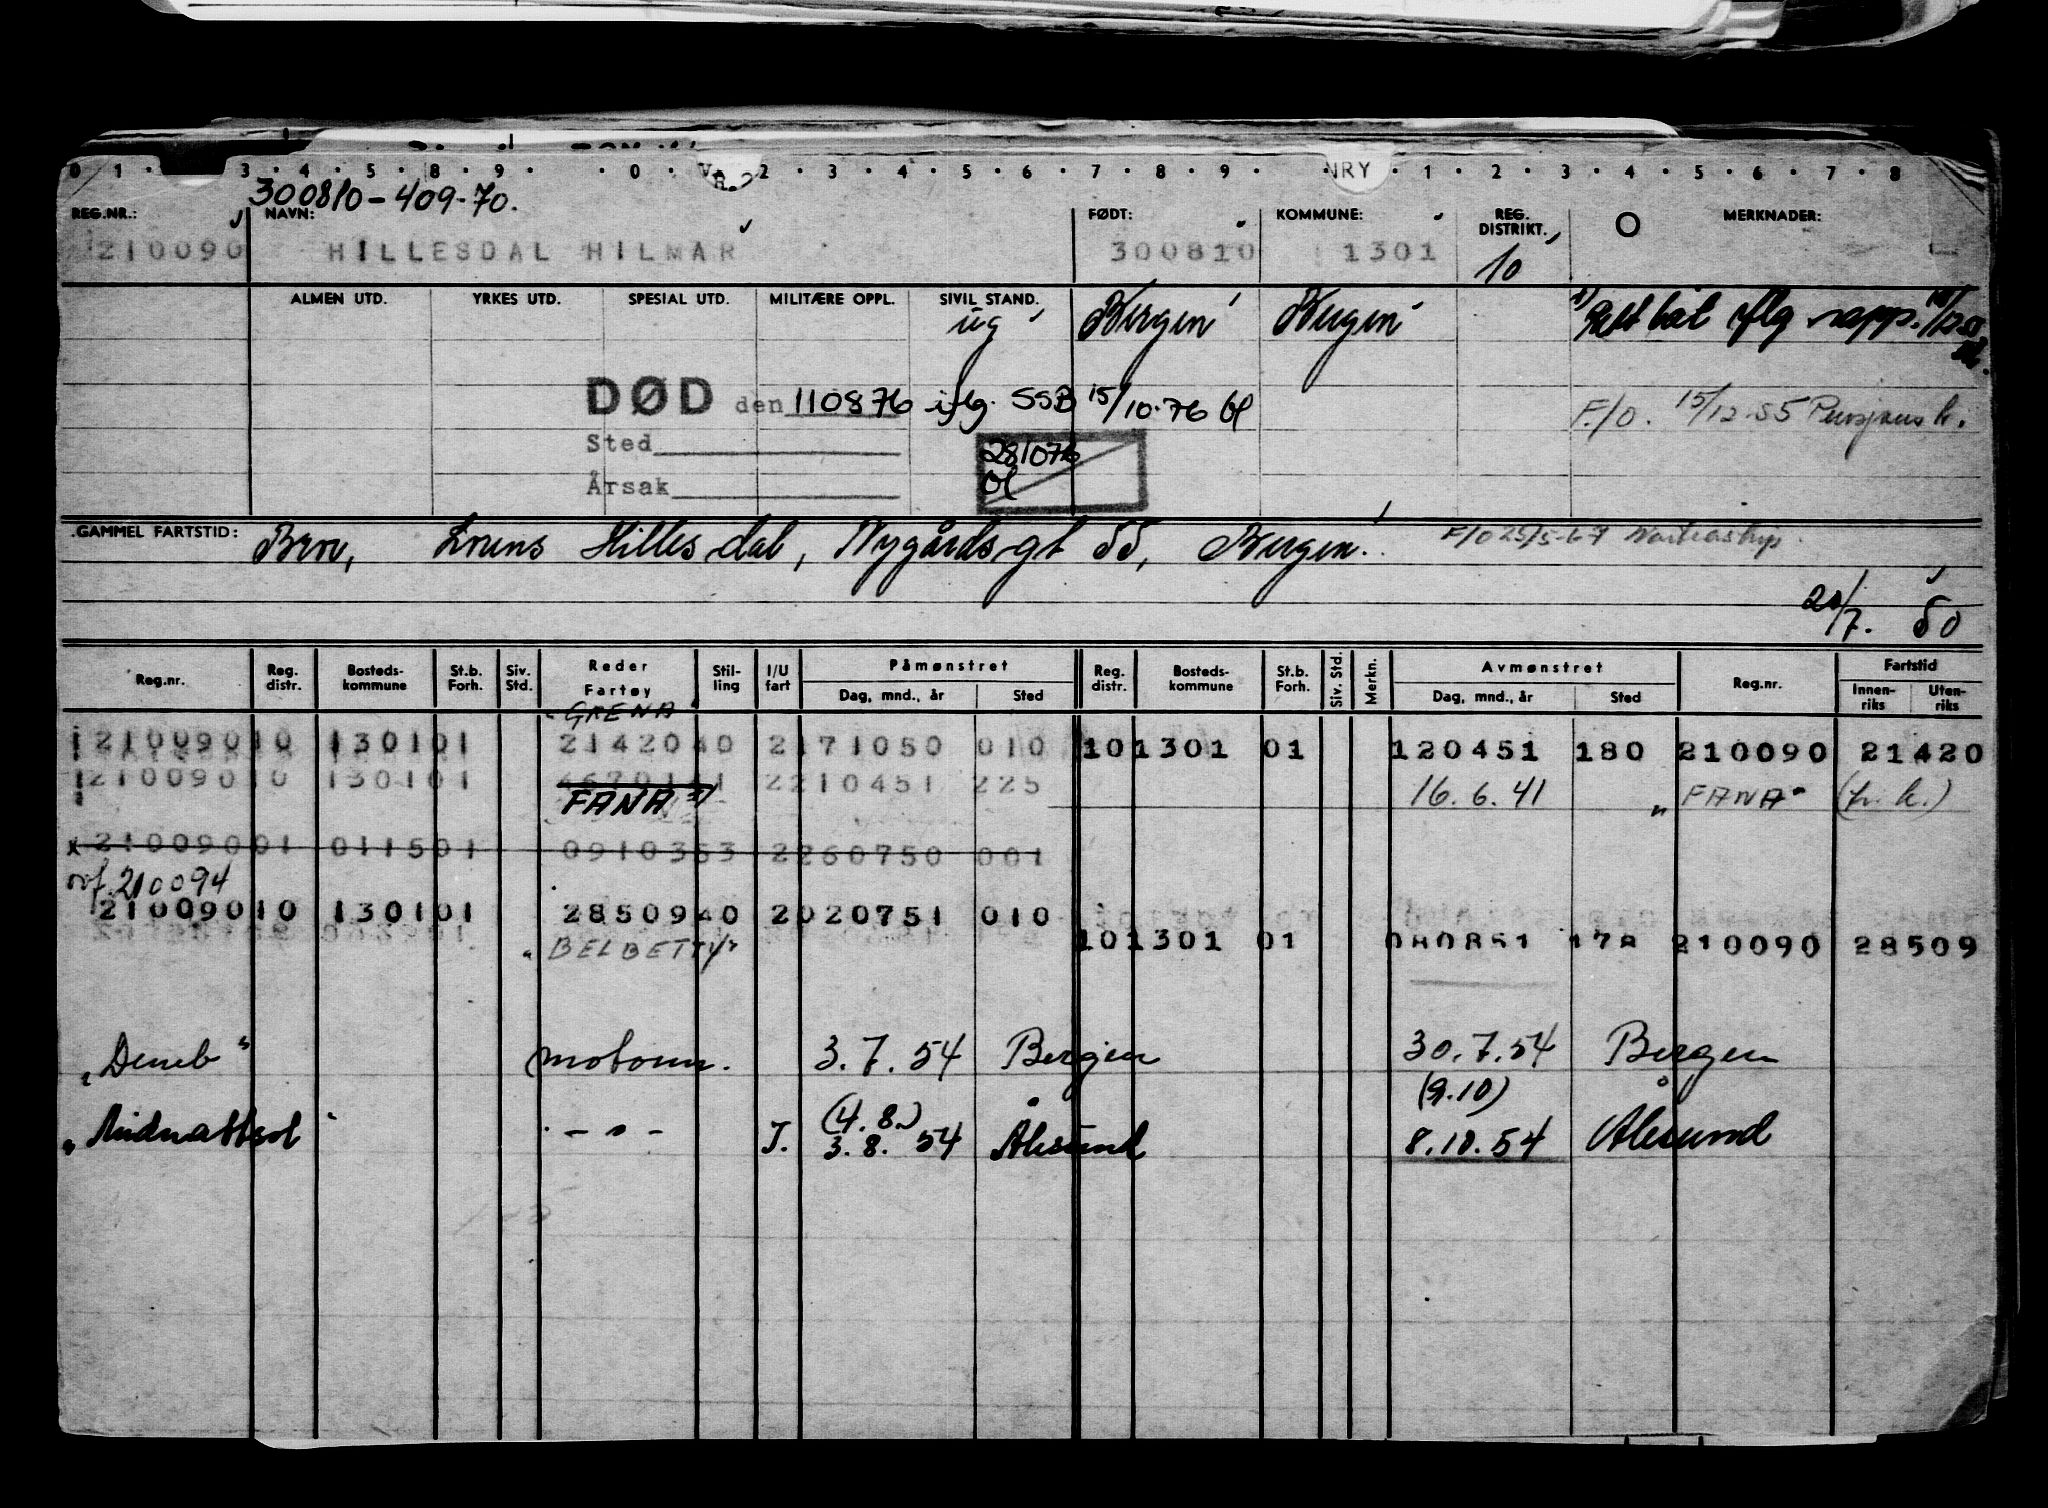 0 1 · 3 · 4 · 5 · 8 · 9 · 0 · 0 · V 2 · 3 · 4 · 5 · 6 · 7 · 8 · 9 · NRY · 1 · 2 · 3 · 4 · 5 · 6 · 7 · 8
300810-409-70.
REG.NR.: NAVN: FØDT: KOMMUNE: REG. DISTRIKT. MERKNADER:
210090 HILLESDAL HILMAR 300810 1301 10
ALMEN UTD. YRKES UTD. SPESIAL UTD. MILITÆRE OPPL. SIVIL STAND.
ug Bergen Bergen
DØD den 110876 iflg. SSB 15/10-76
F/O. 15/12-55
Sted
281076
Årsak
GAMMEL FARTSTID: Bror, Hillesdal, Nygårdsgt 55, Bergen. F/O 25/5-67
20/7. 50
Reg.nr. Reg. distr. Bosteds-kommune St.b. Forh. Siv. Std. Reder Fartøy Stil-ling I/U fart Påmønstret Dag, mnd., år Sted Reg. distr. Bosteds-kommune St.b. Forh. Siv. Std. Merkn. Avmønstret Dag, mnd., år Sted Reg.nr. Fartstid Innen-riks Uten-riks
"GRENA"
21009010 130101 2142040 2171050 010 101301 01 120451 180 210090 21420
21009010 130101 2210451 225
FANA 16.6.41 "FANA" (tr. k.)
x 21009001 011501 0910353 2260750 001
ovf. 210094
21009010 130101 2850940 2020751 010
"BELBETTY" 101301 01 080851 178 210090 28509
"Deneb" motorm. 3.7.54 Bergen 30.7.54 Bergen
(4.8.) (9.10)
"Midnattsol - " - I. 3.8.54 Ålesund 8.10.54 Ålesund